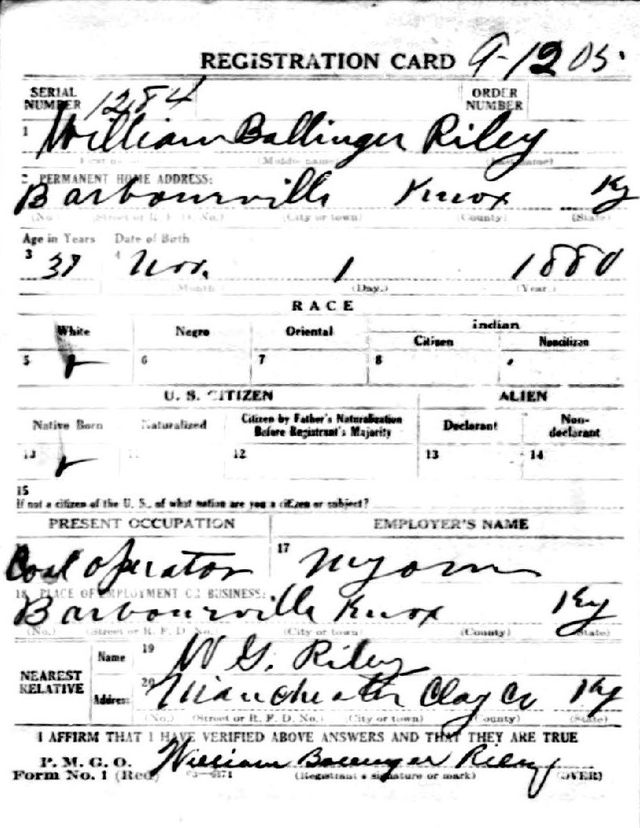 REGISTRATION CARD 9-12 05.
SERIAL NUMBER 1284 ORDER NUMBER
1 William Ballinger Riley
(Middle name)
2 PERMANENT HOME ADDRESS:
Barbourville Knox Ky
(No.) (Street or R. F. D. No.) (City or town) (County) (State)
Age in Years Date of Birth
3 37 4 Nov. 1 1880
(Month) (Day.) (Year)
RACE
White Negro Oriental Indian
Citizen Noncitizen
5 6 7 8
U. S. CITIZEN ALIEN
Native Born Naturalized Citizen by Father's Naturalization Before Registrant's Majority Declarant Non-declarant
10 11 12 13 14
15
If not a citizen of the U. S., of what nation are you a citizen or subject?
PRESENT OCCUPATION EMPLOYER'S NAME
Coal operator 17
18 PLACE OF EMPLOYMENT OR BUSINESS:
Barbourville Knox Ky
(No.) (Street or R. F. D. No.) (City or town) (County) (State)
NEAREST RELATIVE Name 19 W G. Riley
Address 20 Manchester Clay Co Ky
(No.) (Street or R. F. D. No.) (City or town) (County) (State)
I AFFIRM THAT I HAVE VERIFIED ABOVE ANSWERS AND THAT THEY ARE TRUE
P. M. G. O.
Form No. 1 (Red) William Ballinger Riley
(Registrant's signature or mark) (OVER)